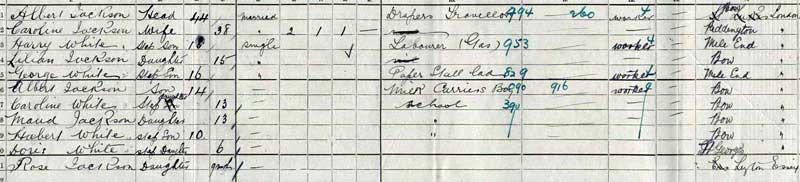 Albert Jackson Head 44 married Drapers Traveller 494 260 worker 4 Bow London
2 Caroline Jackson Wife 38 " 2 1 1 — Paddington "
3 Harry White Step Son 18 single Labourer (Gas) 953 worker 4 Mile End "
4 Lilian Jackson Daughter 15 " Bow "
5 George White Step Son 16 — Paper Stall Lad worker Mile End "
6 Albert Jackson Son 14 — Milk Carriers Boy 916 worker Bow "
7 Caroline White Step 13 — School 390 Bow "
8 Maud Jackson Daughter 13 — " Bow "
9 Herbert White Step Son 10 — " Bow "
0 Doris White Step Daughter 6 — St Georges "
1 Rose Jackson Daughter — Leyton Essex